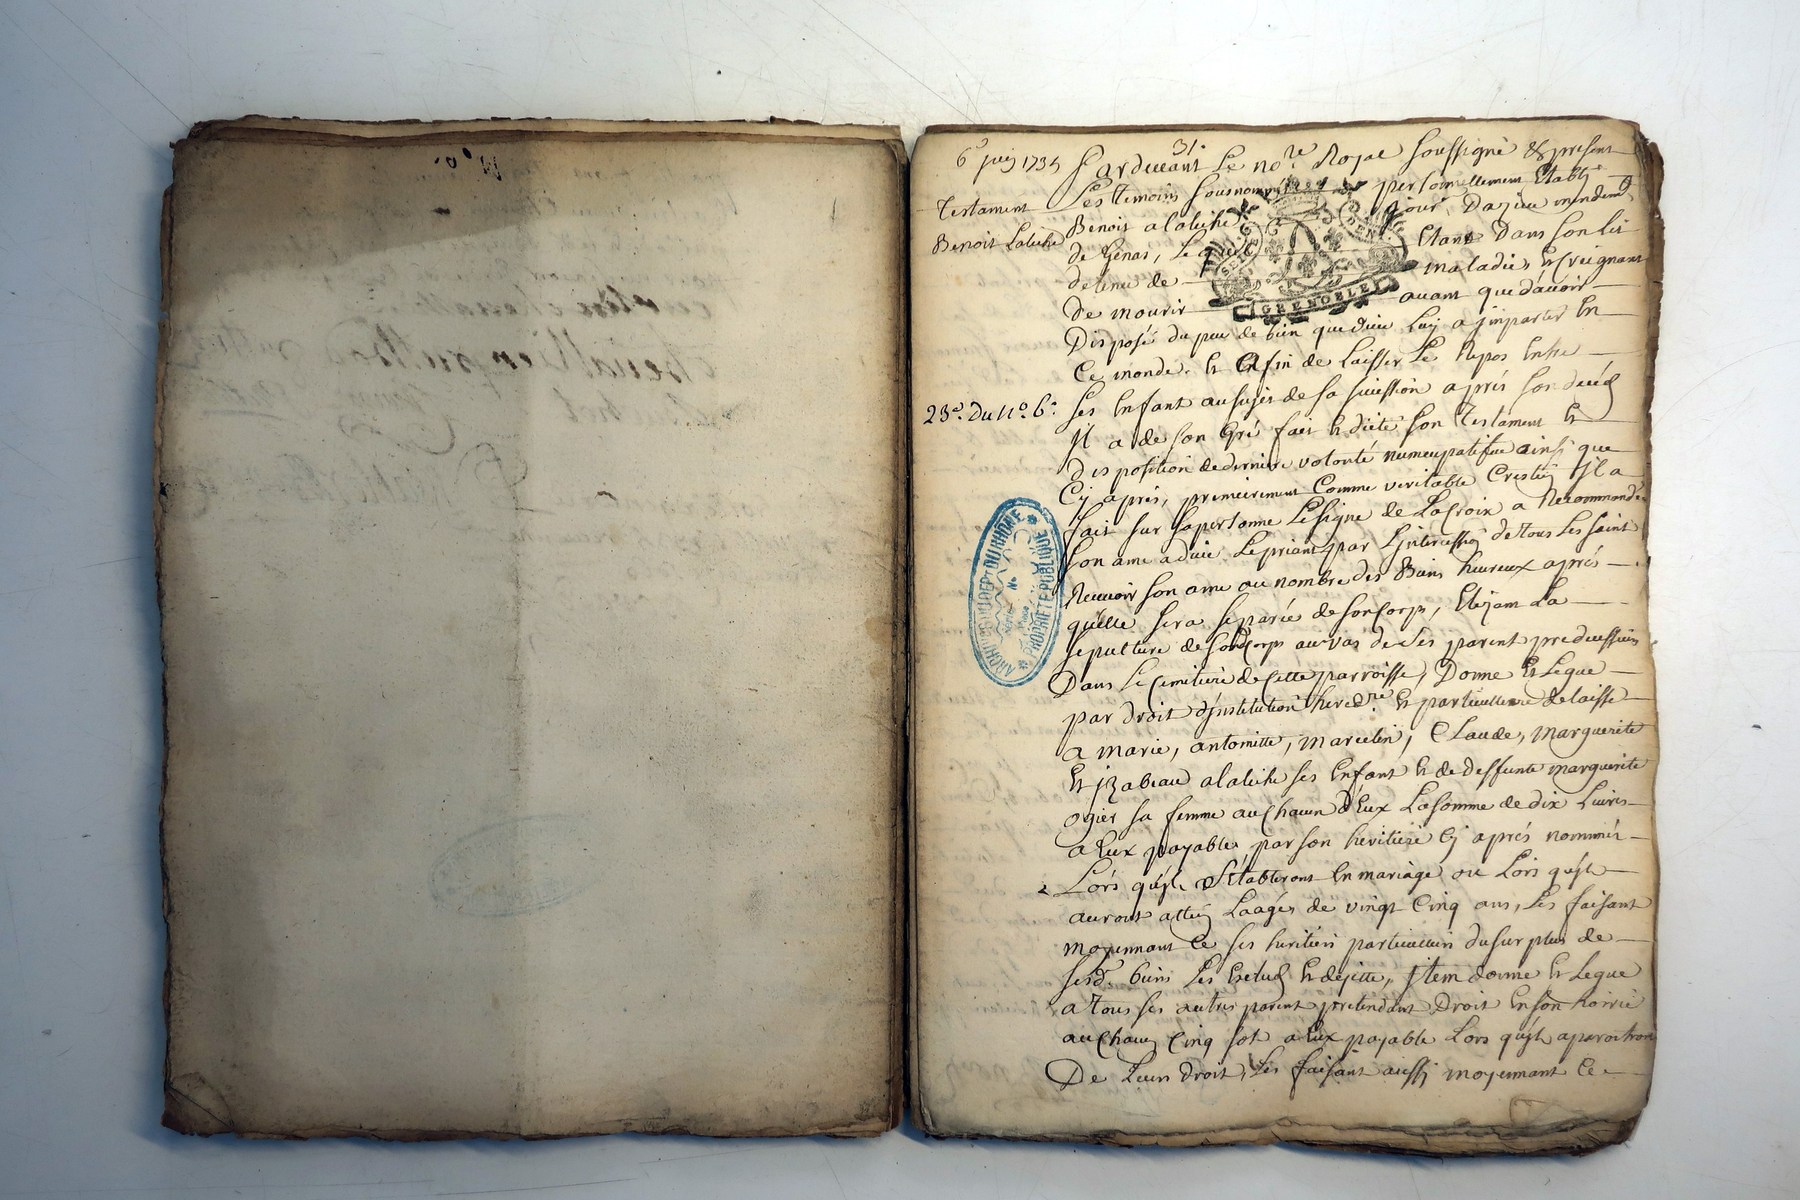 31.
6e juin 1735
Testament
Benoit Laleche
23e. Du no. 6.
Pardevant Le nore. Royal Soussigné & présent
Les Temoins Sousnommés personnellement Etably
Benoit alaleche jour. Dazieu mendemt.
de Genas, Le quel Etant Dans Son Lit
detenu de maladie, Et Creignant
De mourir avant que d'avoir
Disposé du peu de bien que dieu Luy a jmparter En
Ce monde. Et Afin de Laisser Le Repos Entre
Ses Enfant au sujet de Sa Suission aprés Son decéd
Jl a de Son Gré fait Et dicté Son Testament Et
disposition de derniere volonté numcupatifue ainsi que
Cy aprés, premierement Comme veritable Crestien Jl a
fait Sur Sa personne Le Signe de La Croix a Recommandé
Son ame a dieu. Le priant par Lintercession de Tous Les Saint
Recevoir Son ame au nombre des Bien heureux aprés
qu'elle Sera Separée de Son Corps, Elizam La
Sepulture de Son Corps au vas de Ses parent predecessurs
Dans Le Cemitiere de Cette parroisse, Donne Et Legue
par droit djnstitution heredre. Et particulliere delaisse
a marie, antoinette, marcelin, Claude, marguerite
Et jzabeau alaleche Ses Enfant Et de deffunte marguerite
ogier Sa femme au Chacun d'Eux La Somme de dix Livres
a Eux payable, par Son heritiere Cy aprés nommée
Lors qu'jls S'Etableront En mariage ou Lors qu'jls
auront attein Laage, de vingt Cinq ans, Les faisant
moyennant Ce Ses heritiers particulliers du Sur plus de
Sesd. biens Les Exclud Et dejette, jtem donne Et Legue
a Tous Ses autres parent pretendant Droit En Son hoirie
au Chacun Cinq Sol a Eux payable Lors qu'jls aparoitront
De Leurs droit, Les faisant aussy moyennant Ce
GRENOBLE
ARCHIVES DU DEPT DU RHÔNE
PROPRIÉTÉ PUBLIQUE